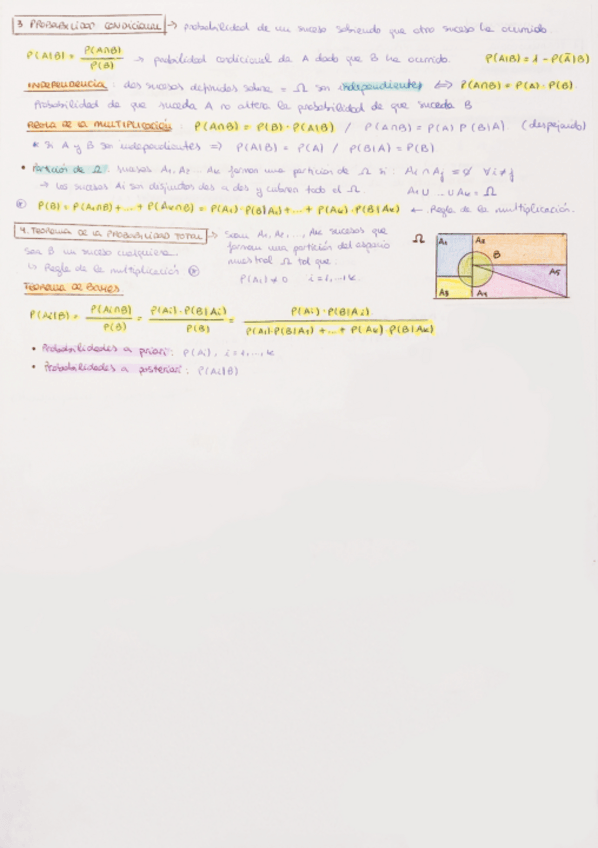 3. PROBABILIDAD CONDICIONAL → probabilidad de un suceso sabiendo que otro suceso ha ocurrido.
P(A|B) = P(A∩B) / P(B) → probabilidad condicional de A dado que B ha ocurrido. P(A|B) = 1 - P(Ā|B)
INDEPENDENCIA: dos sucesos definidos sobre = Ω son independientes ⟺ P(A∩B) = P(A) · P(B).
Probabilidad de que suceda A no altera la probabilidad de que suceda B
REGLA DE LA MULTIPLICACIÓN: P(A∩B) = P(B) · P(A|B) / P(A∩B) = P(A) P(B|A) (despejando)
* Si A y B son independientes ⇒ P(A|B) = P(A) / P(B|A) = P(B)
• Partición de Ω: sucesos A1, A2 ... Ak forman una partición de Ω si: Ai ∩ Aj = ∅ ∀i≠j
→ los sucesos Ai son disjuntos dos a dos y cubren todo el Ω. A1 ∪ ... ∪ Ak = Ω
⊛ P(B) = P(A1∩B) + ... + P(Ak∩B) = P(A1) · P(B|A1) + ... + P(Ak) · P(B|Ak) ← Regla de la multiplicación.
4. TEOREMA DE LA PROBABILIDAD TOTAL → Sean A1, A2, ..., Ak sucesos que
forman una partición del espacio
muestral Ω tal que.
P(Ai) ≠ 0 i = 1, ..., k.
Sea B un suceso cualquiera.
Regla de la multiplicación ⊛
Ω
A1 A2
B
A5
A3 A4
TEOREMA DE BAYES
P(Ai|B) = P(Ai∩B) / P(B) = P(Ai) · P(B|Ai) / P(B) = P(Ai) · P(B|Ai) / P(A1) · P(B|A1) + ... + P(Ak) · P(B|Ak)
• Probabilidades a priori: P(Ai), i = 1, ..., k
• Probabilidades a posteriori: P(Ai|B)